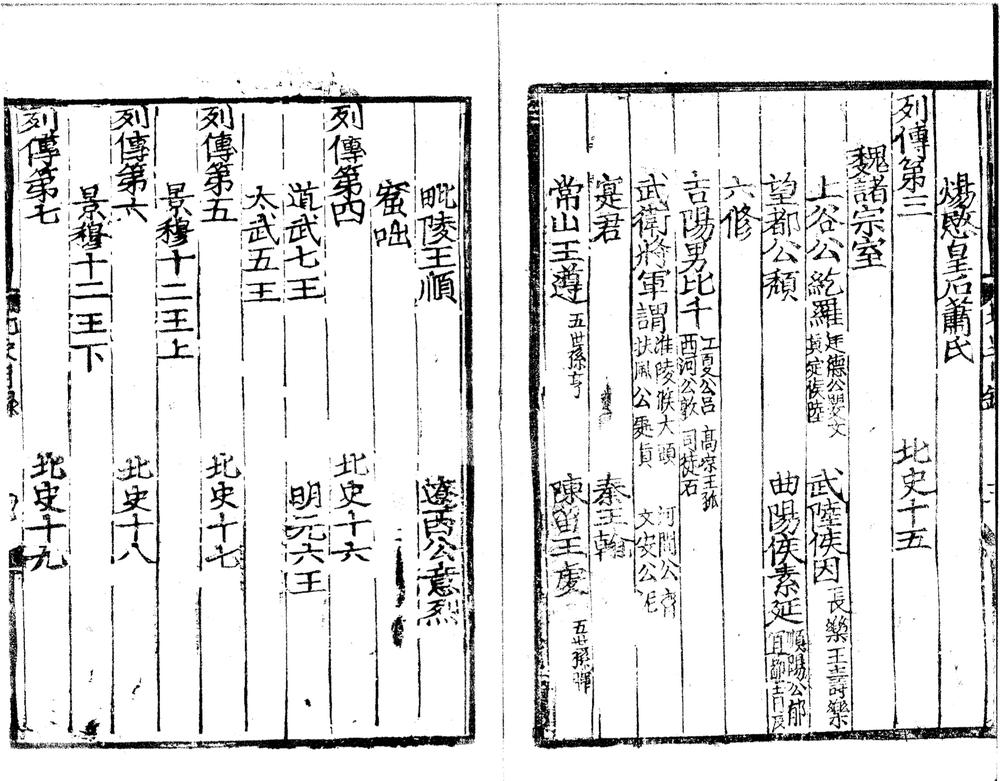 煬愍皇后蕭氏
列傳第三 北史十五
魏諸宗室
上谷公紇羅 建德公嬰文 真定侯陸 武陵侯因 長樂王壽樂
望都公頹 曲陽侯素延 順陽公郁 宜都王目辰
六修
吉陽男比干 江夏公呂 西河公敦 高涼王孤 司徒石
武衛將軍謂 淮陵侯大頭 扶風公處真 河間公齊 文安公泥
寔君 秦王翰
常山王遵 五世孫亨 陳留王虔 五世孫暉
毗陵王順 遼西公意烈
窟咄
列傳第四 北史十六
道武七王 明元六王
太武五王
列傳第五 北史十七
景穆十二王上
列傳第六 北史十八
景穆十二王下
列傳第七 北史十九
北史目錄